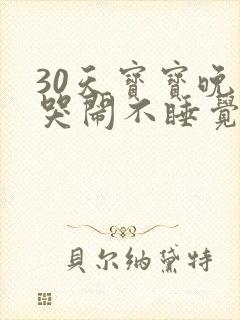 30天寶寶晚
哭鬧不睡覺
貝尔纳黛特